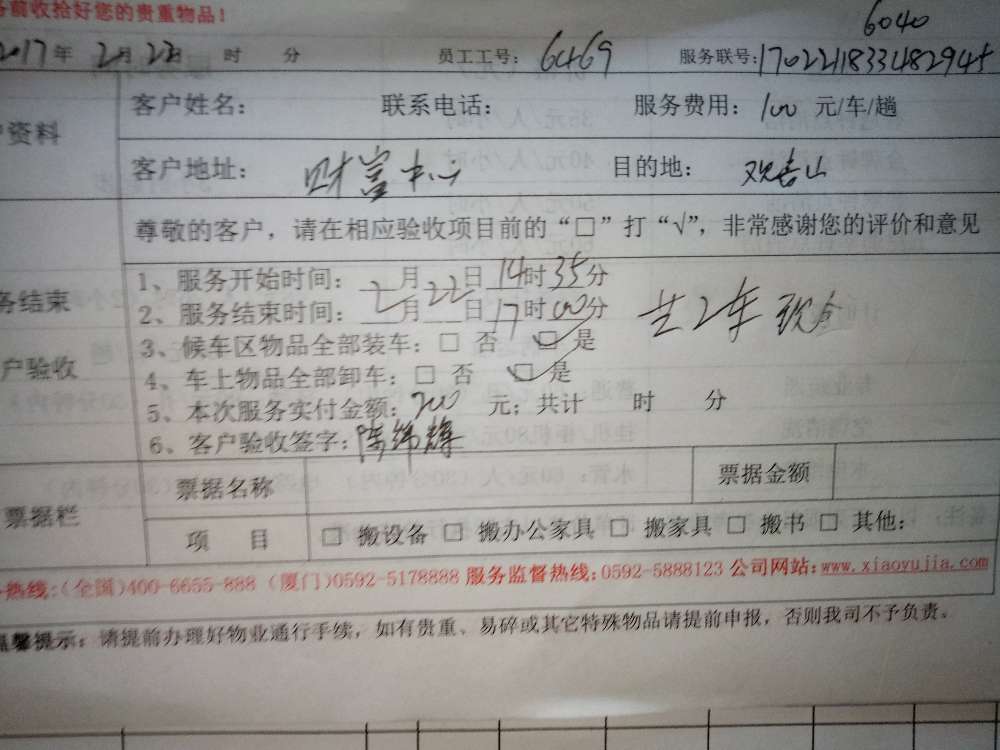 前收拾好您的贵重物品!
6040
2017年 2月 22日 时 分 员工工号: 6469 服务联号:1702211833482945
客户姓名: 联系电话: 服务费用: 100 元/车/趟
资料
客户地址: 财富中心 目的地: 观音山
尊敬的客户，请在相应验收项目前的“□”打“√”，非常感谢您的评价和意见
1、服务开始时间: 2月22日14时35分
务结束
2、服务结束时间: 月 日17时00分 共2车 现金
3、候车区物品全部装车: □ 否 ☑ 是
户验收
4、车上物品全部卸车: □ 否 ☑ 是
5、本次服务实付金额: 200 元; 共计 时 分
6、客户验收签字: 陈炜
票据名称 票据金额
票据栏
项 目 □ 搬设备 □ 搬办公家具 □ 搬家具 □ 搬书 □ 其他:
热线:(全国)400-6655-888 (厦门)0592-5178888 服务监督热线:0592-5888123 公司网站:www.xiaoyujia.com
温馨提示: 请提前办理好物业通行手续，如有贵重、易碎或其它特殊物品请提前申报，否则我司不予负责。